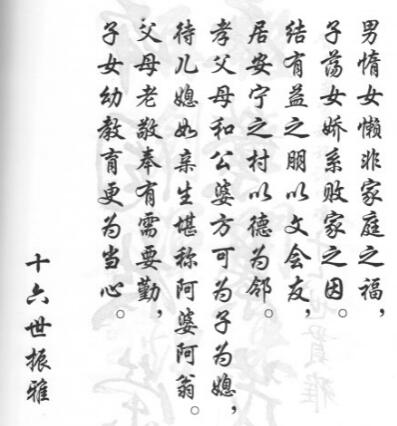 男惰女懒非家庭之福，
子荡女娇系败家之因。
结有益之朋以文会友，
居安宁之村以德为邻。
孝父母和公婆方可为子为媳，
待儿媳如亲生堪称阿婆阿翁。
父母老敬奉有需要勤，
子女幼教育更为当心。
十六世振雅